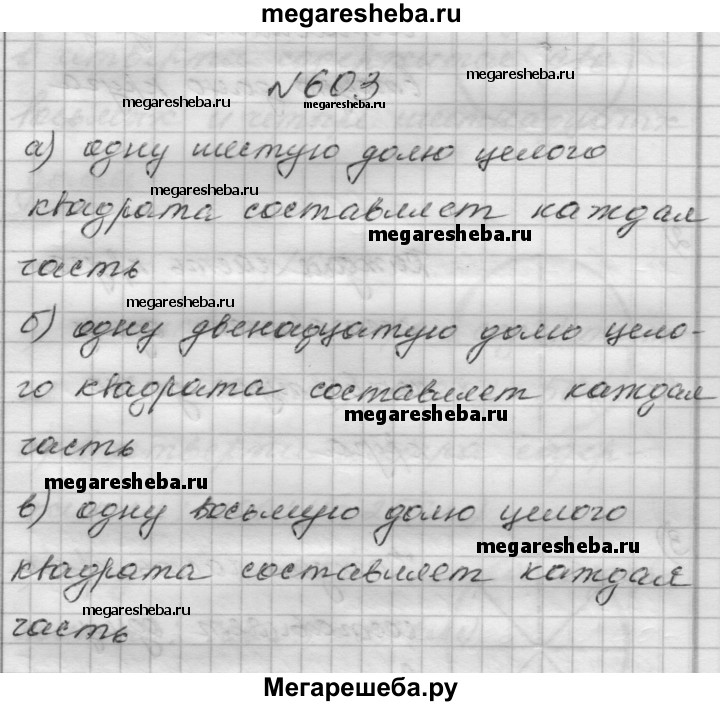 megaresheba.ru
№603
megaresheba.ru
megaresheba.ru
megaresheba.ru
а) одну шестую долю целого
megaresheba.ru
квадрата составляет каждая
megaresheba.ru
часть
megaresheba.ru
б) одну двенадцатую долю цело-
го квадрата составляет каждая
megaresheba.ru
часть
megaresheba.ru
в) одну восьмую долю целого
megaresheba.ru
квадрата составляет каждая
megaresheba.ru
часть
Мегарешеба.ру